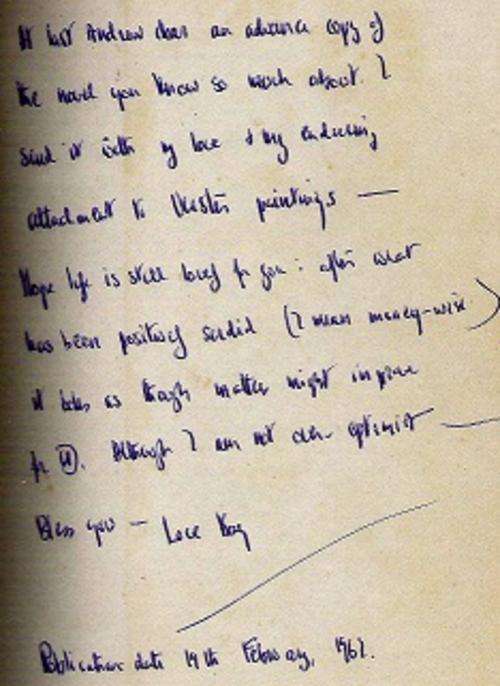 At last Andrew dear an advance copy of
the novel you know so much about. I
send it with my love & my enduring
attachment to Ulster paintings —
Hope life is still lovely for you: after what
has been positively sordid (I mean money-wise)
it looks as though matters might improve
for U. Although I am not over-optimist —
Bless you — Love Kay
Publication date 19th February, 1962.